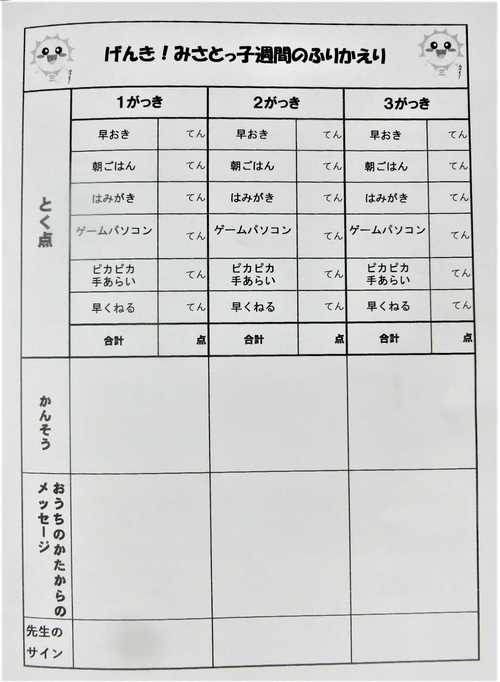 げんき！みさとっ子週間のふりかえり
1がっき 2がっき 3がっき
とく点
早おき てん 早おき てん 早おき てん
朝ごはん てん 朝ごはん てん 朝ごはん てん
はみがき てん はみがき てん はみがき てん
ゲームパソコン てん ゲームパソコン てん ゲームパソコン てん
ピカピカ
手あらい てん
ピカピカ
手あらい てん
ピカピカ
手あらい てん
早くねる てん 早くねる てん 早くねる てん
合計 点 合計 点 合計 点
かんそう
おうちのかたからの
メッセージ
先生の
サイン